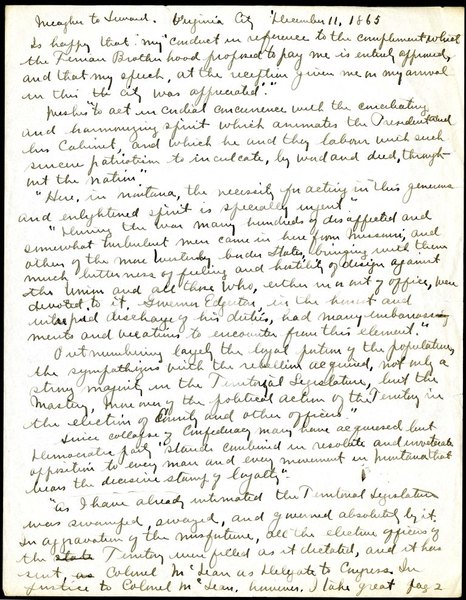 Meagher to Seward. Virginia City December 11, 1865
Is happy that "my" conduct in reference to the complement which
the Fenian Brotherhood proposed to pay me is entirely approved,
and that my speech, at the reception given me on my arrival
in this city was appreciated."
Wishes "to act in cordial concurrence with the conciliating
and harmonizing spirit which animates the President and
his Cabinet, and which he and they labour with such
sincere patriotism to inculcate, by word and deed, through-
out the nation"
"Here, in Montana, the necessity of acting in this generous
and enlightened spirit is specially urgent"
"During the war many hundreds of disaffected and
somewhat turbulent men came in here from Missouri, and
others of the more Westerly border States, bringing with them
much bitterness of feeling and hostility of design against
the Union and all those who, either in or out of office, were
devoted to it. Governor Edgerton, in the honest and
intrepid discharge of his duties, had many embarrass-
ments and vexations to encounter from this element."
Outnumbering largely the loyal portion of the population,
the sympathizers with the rebellion acquired, not only a
strong majority in the Territorial Legislature, but the
Mastery, moreover of the political action of the Territory in
the election of County and other officers."
Since collapse of Confederacy many have acquiesced but
Democratic party "stands combined in resolute and inveterate
opposition to every man and every movement in Montana that
wears the decisive stamp of loyalty"
"As I have already intimated the Territorial Legislature
was swamped, swayed, and governed absolutely by it.
In aggravation of the misfortune, all the elective offices of
the state Territory were filled as it dictated, and it has
sent, as Colonel McLean as Delegate to Congress. In
justice to Colonel McLean, however, I take great pag 2